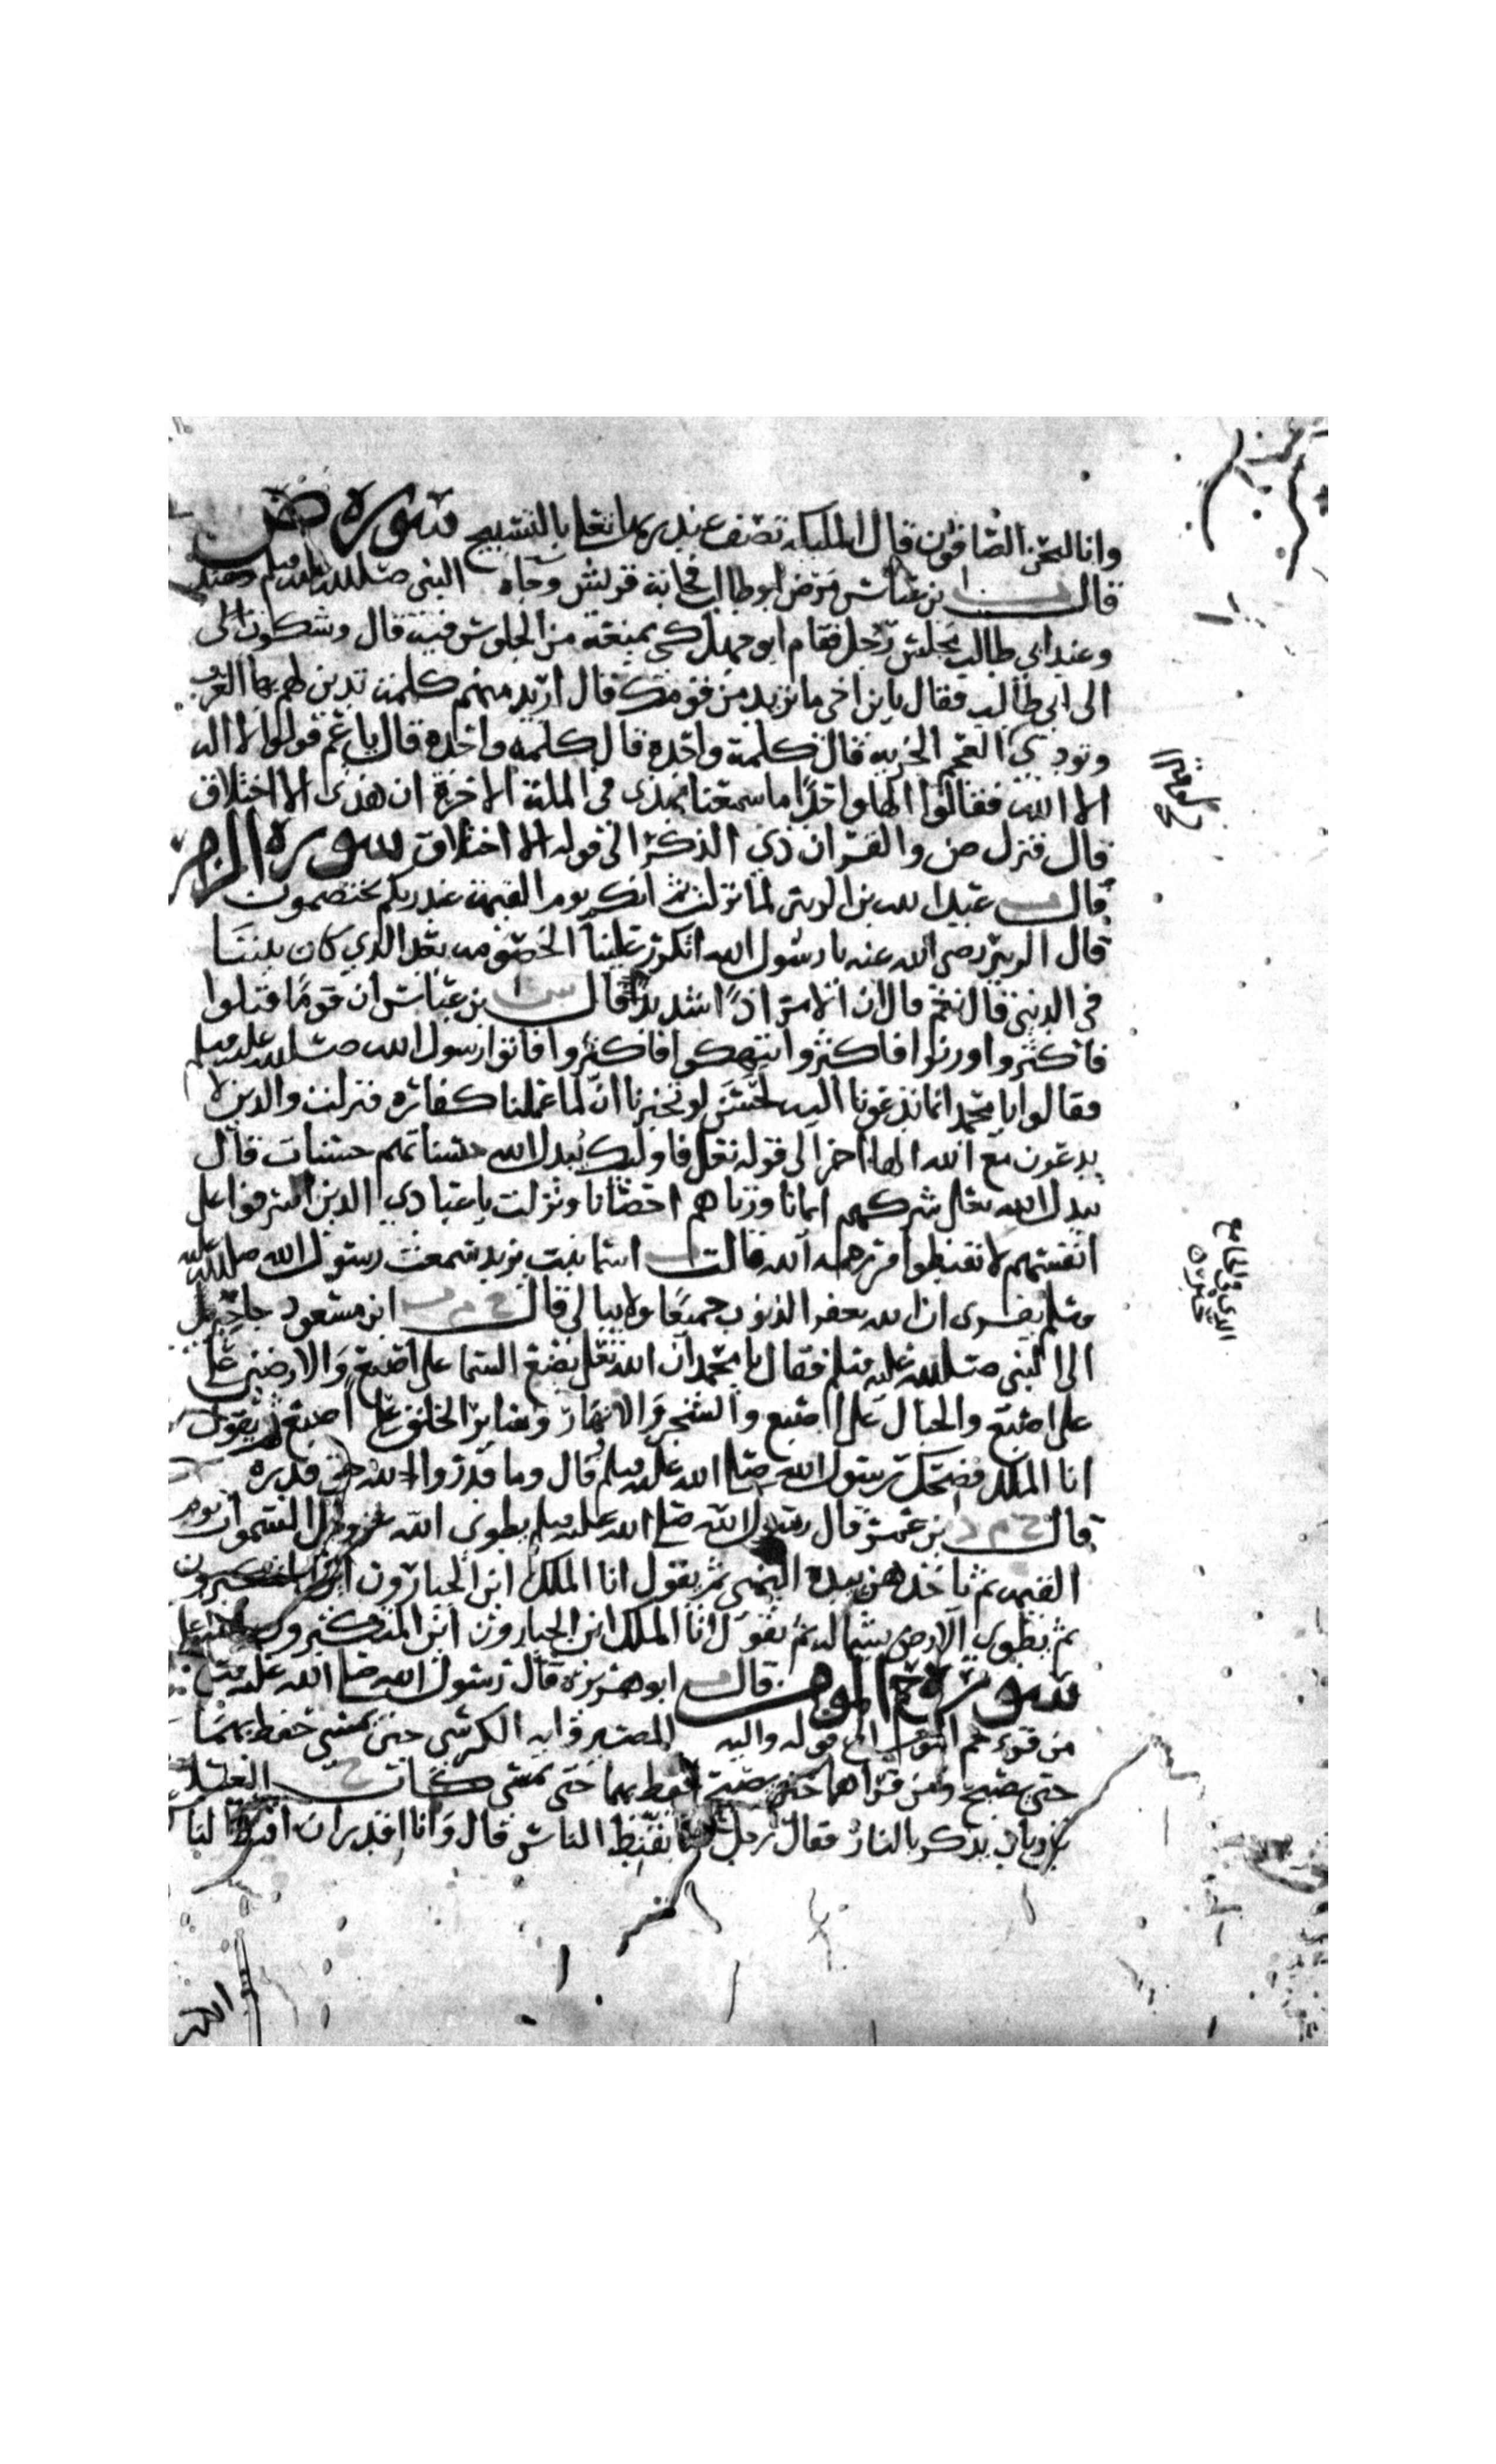 وانا لنحن الصافون قال الملايكه تصف عند ربها تعالى بالتسبيح سورة ص
قال س ا بن عباس مرض ابو طالب فجاته قريش وجاه النبي صلى الله عليه وسلم وعند
وعند ابي طالب مجلس رجل فقام ابو جهل كي يمنعه من الجلوس فيه قال وشكوه الى
الى ابي طالب فقال يا بن اخي ما تريد من قومك قال اريد منهم كلمة تدين لهم بها العرب
وتودي العجم الجزيه قال كلمة واحده قال كلمة واحده قال يا عم قولوا لا اله
الا الله فقالوا الها واحدًا ما سمعنا بهذى في الملة الاخرة ان هذى الا اختلاق
قال فنزل ص والقران ذي الذكر الى قوله الا اختلاق سورة الزمر
قال عبد الله بن الزبير لما نزلت ثم انكم يوم القيمة عند ربكم تختصمون
قال الزبير رضي الله عنه يا رسول الله اتكرر علينا الخصومه بعد الذي كان بيننا
في الدنيى قال نعم قال ان الامر اذًا شديدًا قال س ا بن عباس ان قومًا قتلوا
فاكثروا وزنوا فاكثروا وانتهكوا فاكثروا فاتوا رسول الله صلى الله عليه وسلم
فقالوا يا محمد انما تدعونا اليه لحسن لو تخبرنا ان لما عملنا كفاره فنزلت والذين لا
يدعون مع الله الها اخر الى قوله تعلى فاوليك يبدل الله حسناتهم حسنات قال
يبدل الله تعلى شركهم ايمانا وزناهم احصانا ونزلت يا عبادي الذين اسرفوا على
انفسهم لا تقنطوا من رحمه الله قالت اسما بنت يزيد سمعت رسول الله صلى الله عليه
وسلم يقرى ان الله يغفر الذنوب جميعًا ولا يبالي قال خ م ابن مسعود جا جبريل
الى النبي صلى الله عليه وسلم فقال يا محمد ان الله تعلى يضع السما على اصبع والارضين على
على اصبع والجبال على اصبع والشجر والانهار وساير الخلق على اصبع ثم يقول
انا الملك فضحك رسول الله صلى الله عليه وسلم قال وما قدروا الله حق قدره
قال خ م د بن عمر قال رسول الله صلى الله عليه وسلم يطوى الله عز وجل السموات يوم
القيمه ثم ياخذهن بيده اليمنى ثم يقول انا الملك اين الجبارون اين المتكبرون
ثم يطوى الارض بشماله ثم يقول انا الملك اين الجبارون اين المتكبرون
سورة حم المومن قال ابو هريره قال رسول الله صلى الله عليه وسلم
من قرء حم المومن الى قوله واليه المصير وايه الكرسي حتى يمسي حفظ بهما
حتى يصبح ومن قراهما حتى يصبح حفظ بهما حتى يمسي كان خ العلا
بن زياد يذكر بالنار فقال رجل لم تقنط الناس قال وانا اقدر ان اقنط الناس
الذي في الجامع
الله